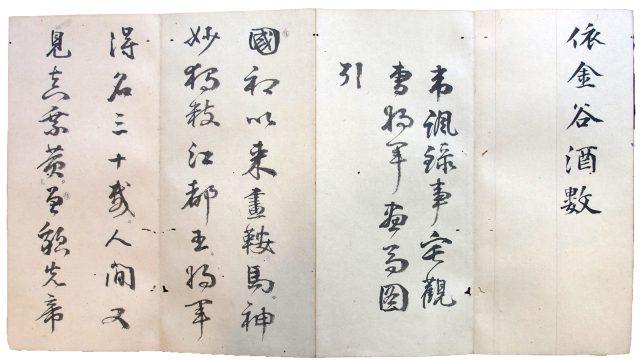 依金谷酒數
韋諷錄事宅觀
曹將軍畫馬圖
引
國初以来畫鞍馬神
妙獨數江都王將軍
得名三十載人間又
見真乘黃曾貌先帝